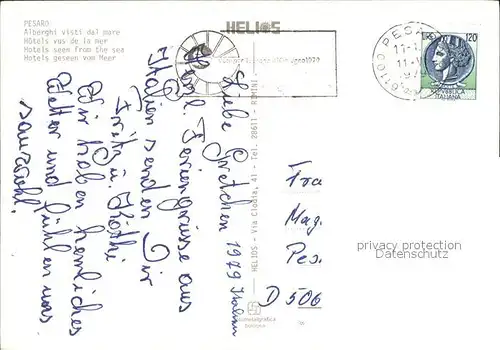 PESARO
Alberghi visti dal mare
Hôtels vus de la mer
Hotels seen from the sea
Hotels geseen vom Meer
HELIOS
61100 PESARO
ITALIANA
120
HELIOS - Via Clodia, 41 - Tel. 28611 - RIMINI
Liebe Gretchen 1979 Italien
Herzl. Feriengrüsse aus
Italien senden Dir
Fritz u. Käthi
Wir haben herrliches
Wetter und fühlen uns
sauwohl.
Fra
Mag.
Pes.
D 506
privacy protection
Datenschutz